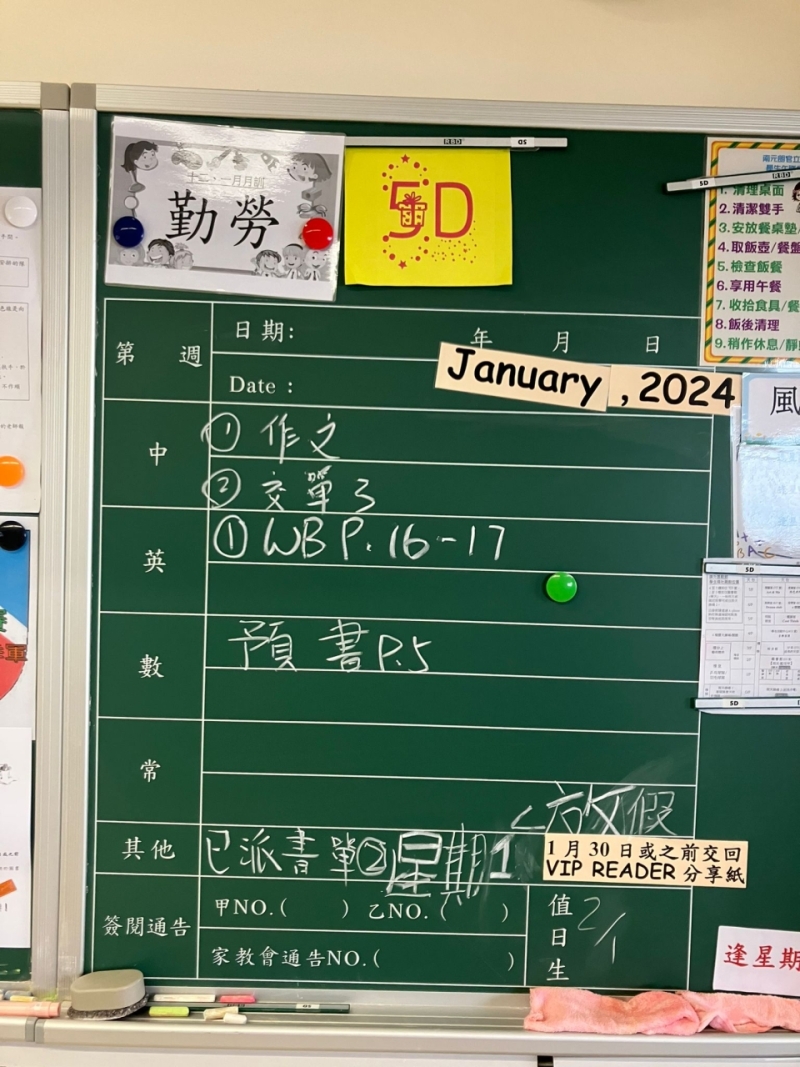 十二、一月月訓
勤勞
5D
1. 清理桌面
2.清潔雙手
3.安放餐桌墊/
4.取飯壺/餐盤
5.檢查飯餐
6.享用午餐
7.收拾食具/餐
8.飯後清理
9.稍作休息/靜
第 週
日期: 年 月 日
Date :
January , 2024
風
中
① 作文
② 交單3
英
① WB P. 16-17
數
預 書P.5
常
<放假
其他
已派書單②星期1
1 月 30 日或之前交回
VIP READER 分享紙
簽閱通告
甲NO.( ) 乙NO. ( )
家教會通告NO.( )
值日生
2/1
逢星期